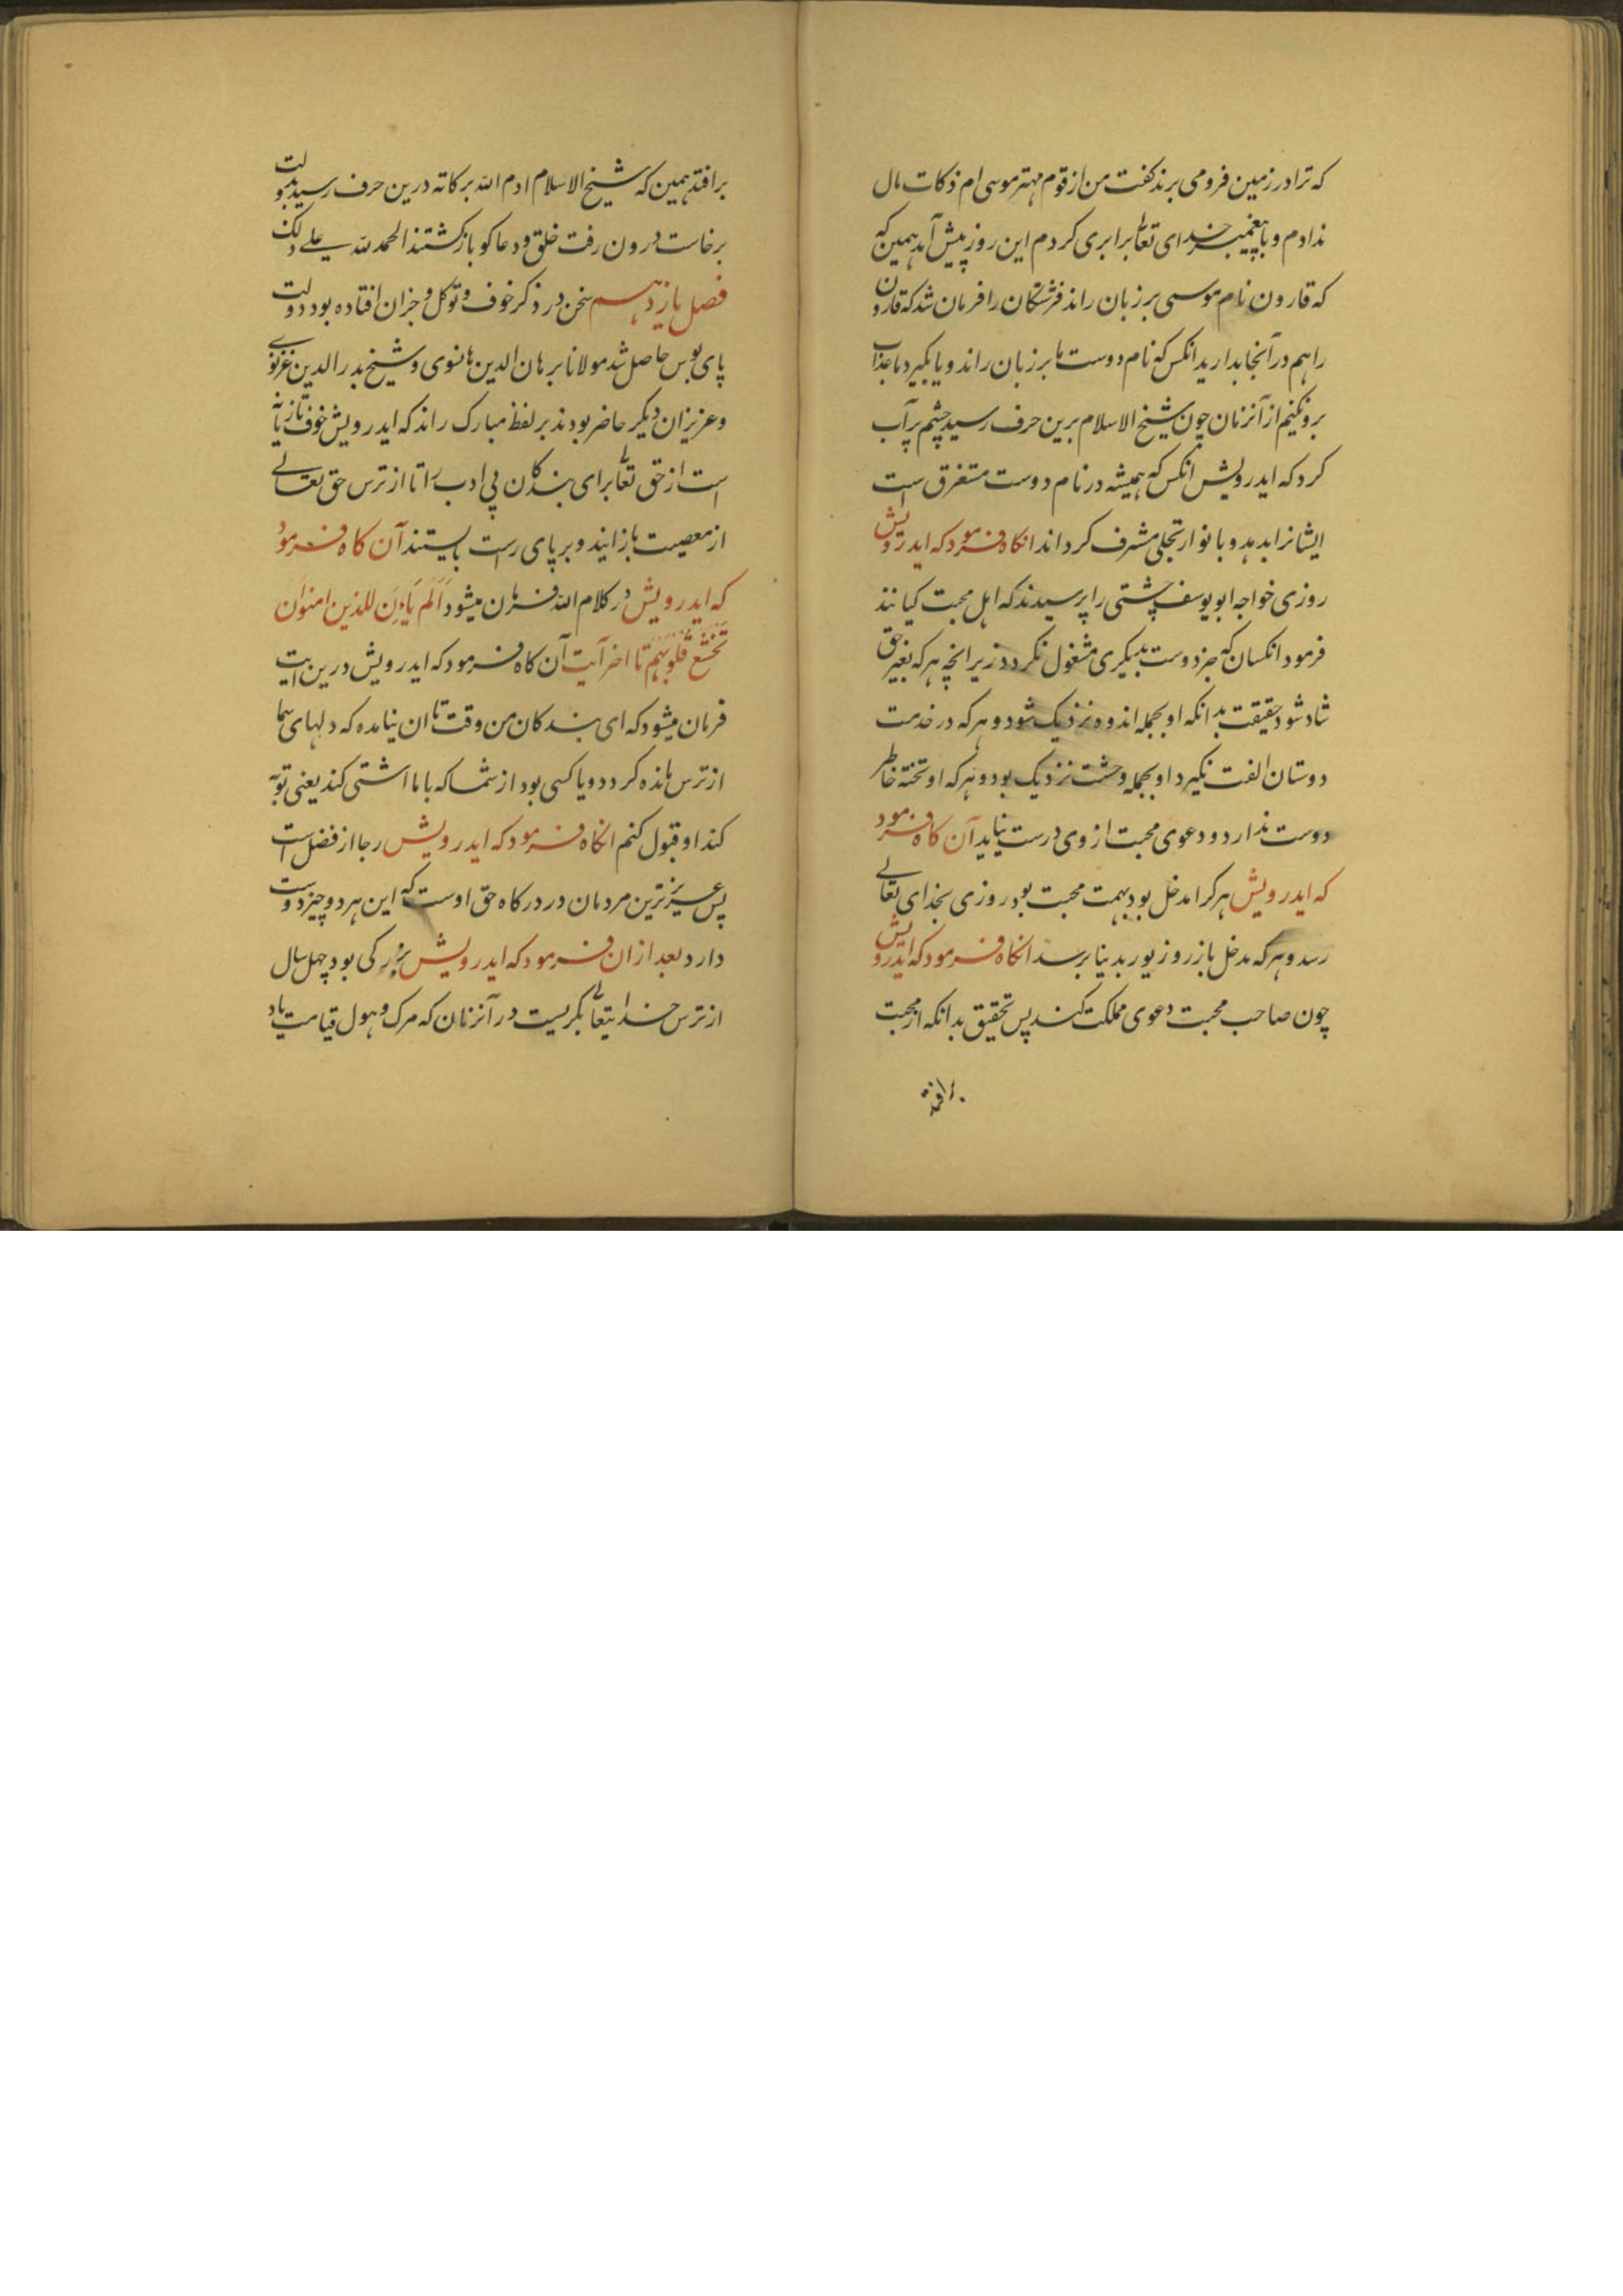 که ترا در زمین فرو می برند کفت من از قوم مهتر موسی ام ذکات مال
ندادم و با پیغمبر خدای تعالی برابری کردم این روز پیش آمد همین که
که قارون نام موسی بر زبان راند فرشتکان را فرمان شد که قارون
را هم در آنجا بدارید انکس که نام دوست ما بر زبان راند و یا بکیرد ما عذاب
برو نکنیم از آنزمان چون شیخ الاسلام برین حرف رسید چشم پر آب
کرد که ایدرویش انکس که همیشه در نام دوست مستغرق است
ایشانرا بدهد و بانوار تجلی مشرف کرداند انکاه فرمود که ایدرویش
روزی خواجه ابو یوسف چشتی را پرسیدند که اهل محبت کیانند
فرمود انکسان که جز دوست بدیکری مشغول نکردد زیرا انچه هر که بغیر حق
شاد شود حقیقت بدانکه او بجمله اندوه نزدیک شود و هر که در خدمت
دوستان الفت نکیرد او بجمله وحشت نزدیک بود و هر که او تخته خاطر
دوست ندارد و دعوی محبت از وی درست نیاید آن کاه فرمود
که ایدرویش هر کرا مدخل بود بهمت محبت بود روزی بخدای تعالی
رسد و هر که مدخل باز روزیور بدینا برسد انکاه فرمود که ایدرویش
چون صاحب محبت دعوی مملکت کند پس تحقیق بدانکه از محبت
برافتد
برافتد همین که شیخ الاسلام ادم الله برکاته درین حرف رسید بدولت
برخاست درون رفت خلق و دعا کو بازکشتند الحمد لله علی ذلک
فصل یازدهم سخن در ذکر خوف و توکل و جزان افتاده بود دولت
پای بوس حاصل شد مولانا برهان الدین هانسوی و شیخ بدر الدین غزنوی
و عزیزان دیکر حاضر بودند بر لفظ مبارک راند که ایدرویش خوف تازیانه
است از حق تعالی برای بندکان بی ادب را تا از ترس حق تعالی
از معصیت باز ایند و بر پای راست بایستند آن کاه فرمود
که ایدرویش در کلام الله فرمان میشود اَلَم یَاءنِ للذین امنوا ان
تخشع قلوبهم تا اخر آیت آن کاه فرمود که ایدرویش درین ایت
فرمان میشود که ای بندکان من وقت تا ان نیامده که دلهای شما
از ترس مانده کردد و یا کسی بود از شما که با ما اشتی کند یعنی توبه
کند او قبول کنم انکاه فرمود که ایدرویش رجا از فضل است
پس عزیز ترین مردمان در درکاه حق اوست که این هر دو چیز دوست
دارد بعد از ان فرمود که ایدرویش بزرکی بود چهل سال
از ترس خدایتعالی بکریست در آنزمان که مرک و هول قیامت یاد